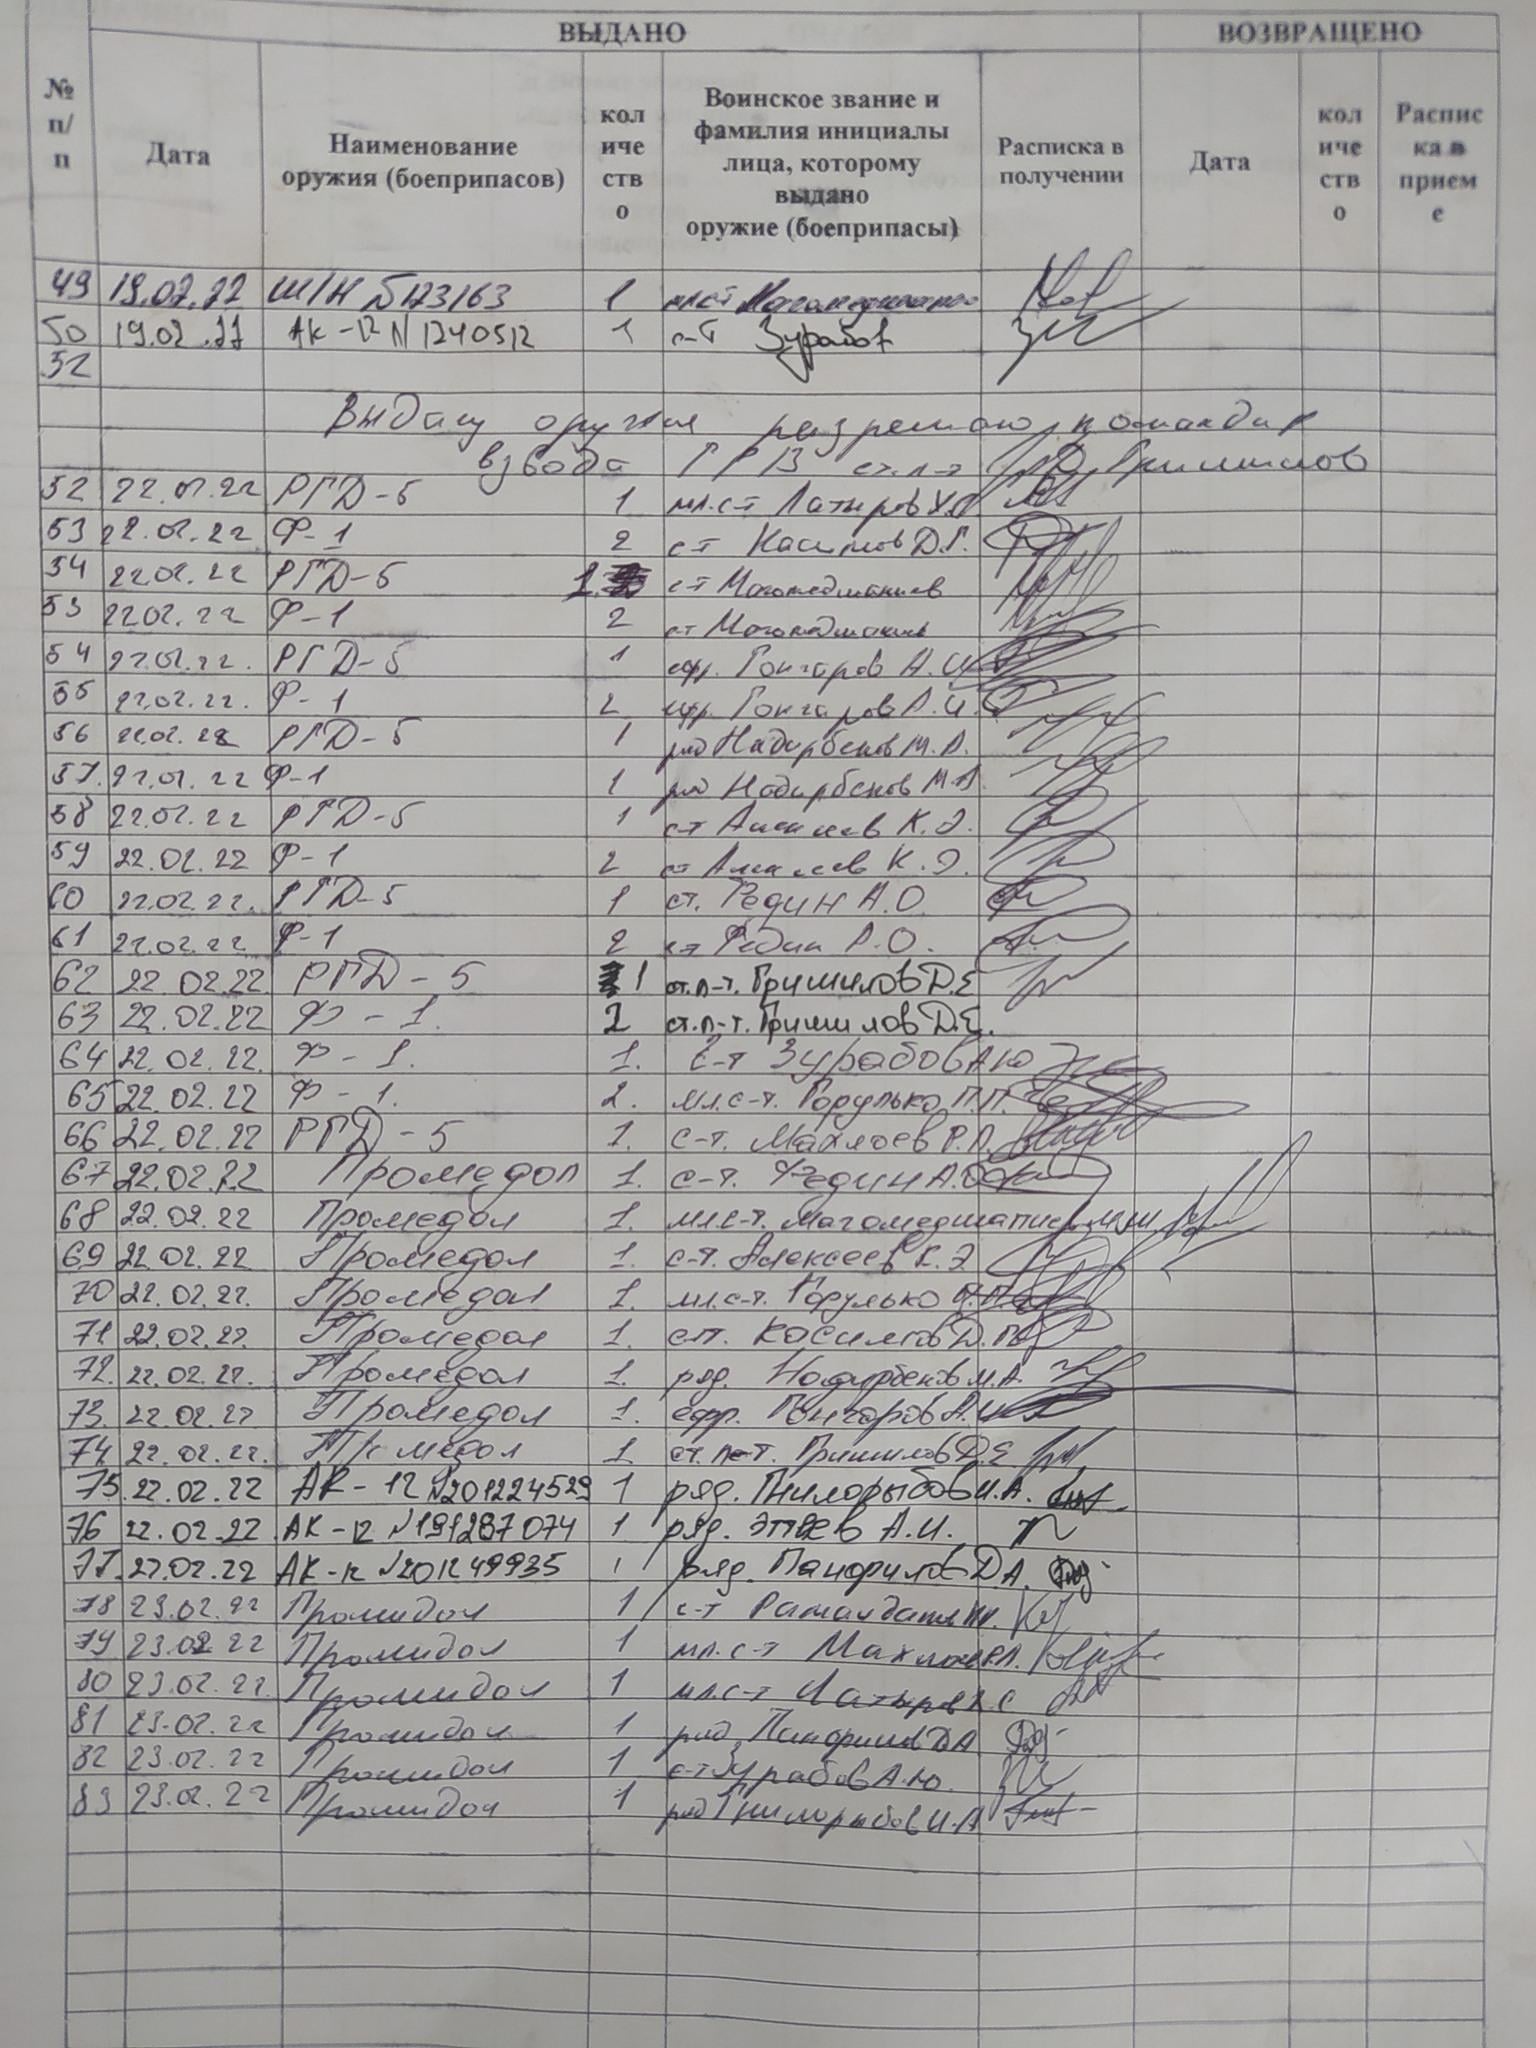 ВЫДАНО ВОЗВРАЩЕНО
№ п/п Дата Наименование оружия (боеприпасов) количество Воинское звание и фамилия инициалы лица, которому выдано оружие (боеприпасы) Расписка в получении Дата количество Расписка в приеме
49 19.02.22 1 мл.с-т
50 19.02.22 АК-12 N 1240512 1 с-т Зурабов
52
Выдачу оружия разрешаю, командир
взвода ст.л-т Гришилов
52 22.02.22 РГД-5 1 мл.с-т Латыров
53 22.02.22 Ф-1 2 с-т Касимов Д.Г.
54 22.02.22 РГД-5 1 с-т
53 22.02.22 Ф-1 2 с-т
54 22.02.22. РГД-5 1 ефр. Гончаров А.И.
55 22.02.22. Ф-1 2 ефр. Гончаров А.И.
56 22.02.22 РГД-5 1 ряд Надирбеков М.А.
57. 22.02.22 Ф-1 1 ряд Надирбеков М.А.
58 22.02.22 РГД-5 1 с-т К.Э.
59 22.02.22 Ф-1 2 с-т К.Э.
60 22.02.22. РГД-5 1 с-т. Федин А.О.
61 22.02.22 Ф-1 2 с-т Федин А.О.
62 22.02.22. РГД-5 1 ст.л-т. Гришилов Д.Е
63 22.02.22 Ф-1. 2 ст.л-т. Гришилов Д.Е.
64 22.02.22. Ф-1. 1. с-т Зурабов А Ю
65 22.02.22 Ф-1. 2. мл.с-т. Горулько П.П.
66 22.02.22 РГД-5 1. с-т. Махлоев Р.Л.
67 22.02.22 Промедол 1. с-т. Федин А.О
68 22.02.22 Промедол 1. мл.с-т. Магомедшапиев
69 22.02.22 Промедол 1. с-т. Алексеев К.Э
70 22.02.22. Промедол 1. мл.с-т. Горулько П.П
71 22.02.22. Промедол 1. с-т. Косимов Д.
72. 22.02.22. Промедол 1. ряд. Надирбеков М.А.
73. 22.02.22 Промедол 1. ефр. Гончаров А.И
74 22.02.22. 1 Гришилов Д.Е.
75. 22.02.22 АК-12 №201224529 1 ряд. Гнилорыбов И.А.
76 22.02.22 АК-12 №191287074 1 ряд. А.И.
77. 22.02.22 АК-12 №201249935 1 ряд. Панфилов Д А.
78 23.02.22 Промидол 1 с-т
79 23.02 22 Промидол 1 мл.с-т Махлоев Р.Л.
80 23.02.22. Промидол 1 мл.с-т Латыров Х.С
81 23.02.22 Промидол 1 ряд Панфилов Д А
82 23.02.22 Промидол 1 с-т Зурабов А.Ю.
83 23.02.22 Промидол 1 ряд Гнилорыбов И.А